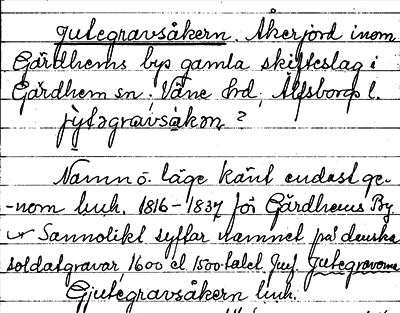 Jutegravsåkern. Åkerjord inom
Gärdhems bys gamla skifteslag i
Gärdhem sn; Väne hd, Älfsborgs l.
jỳtəgra̧vsåkən ?
Namn o. läge känt endast ge-
-nom huh. 1816-1837 för Gärdhems By
Sannolikt syftar namnet på danska
soldatgravar, 1600 el 1500-talet. Jmf Jutegravarna
Gjutegravsåkern huh.